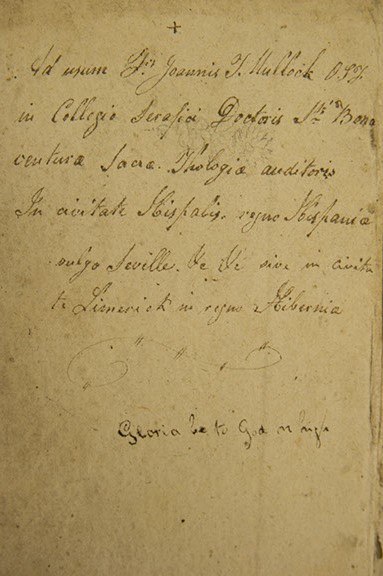 +
Ad usum Fr. Joannis T. Mullock O.S.F.
in Collegio Serafici Doctoris Sti Bona
venturæ Sacræ Thologiæ auditoris
In civitate Hispalis, regno Hispaniæ
vulgo Seville. &c &c sive in civita
te Limerick in regno Hiberniæ
Gloria be to God on high